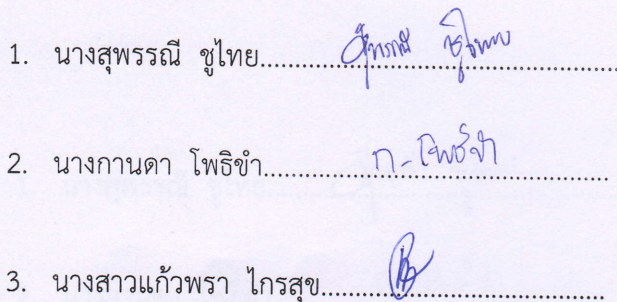 1. นางสุพรรณี ชูไทย.......... สุพรรณี ชูไทย ..........
2. นางกานดา โพธิขำ.......... ก-โพธิขำ ..........
3. นางสาวแก้วพรา ไกรสุข....................